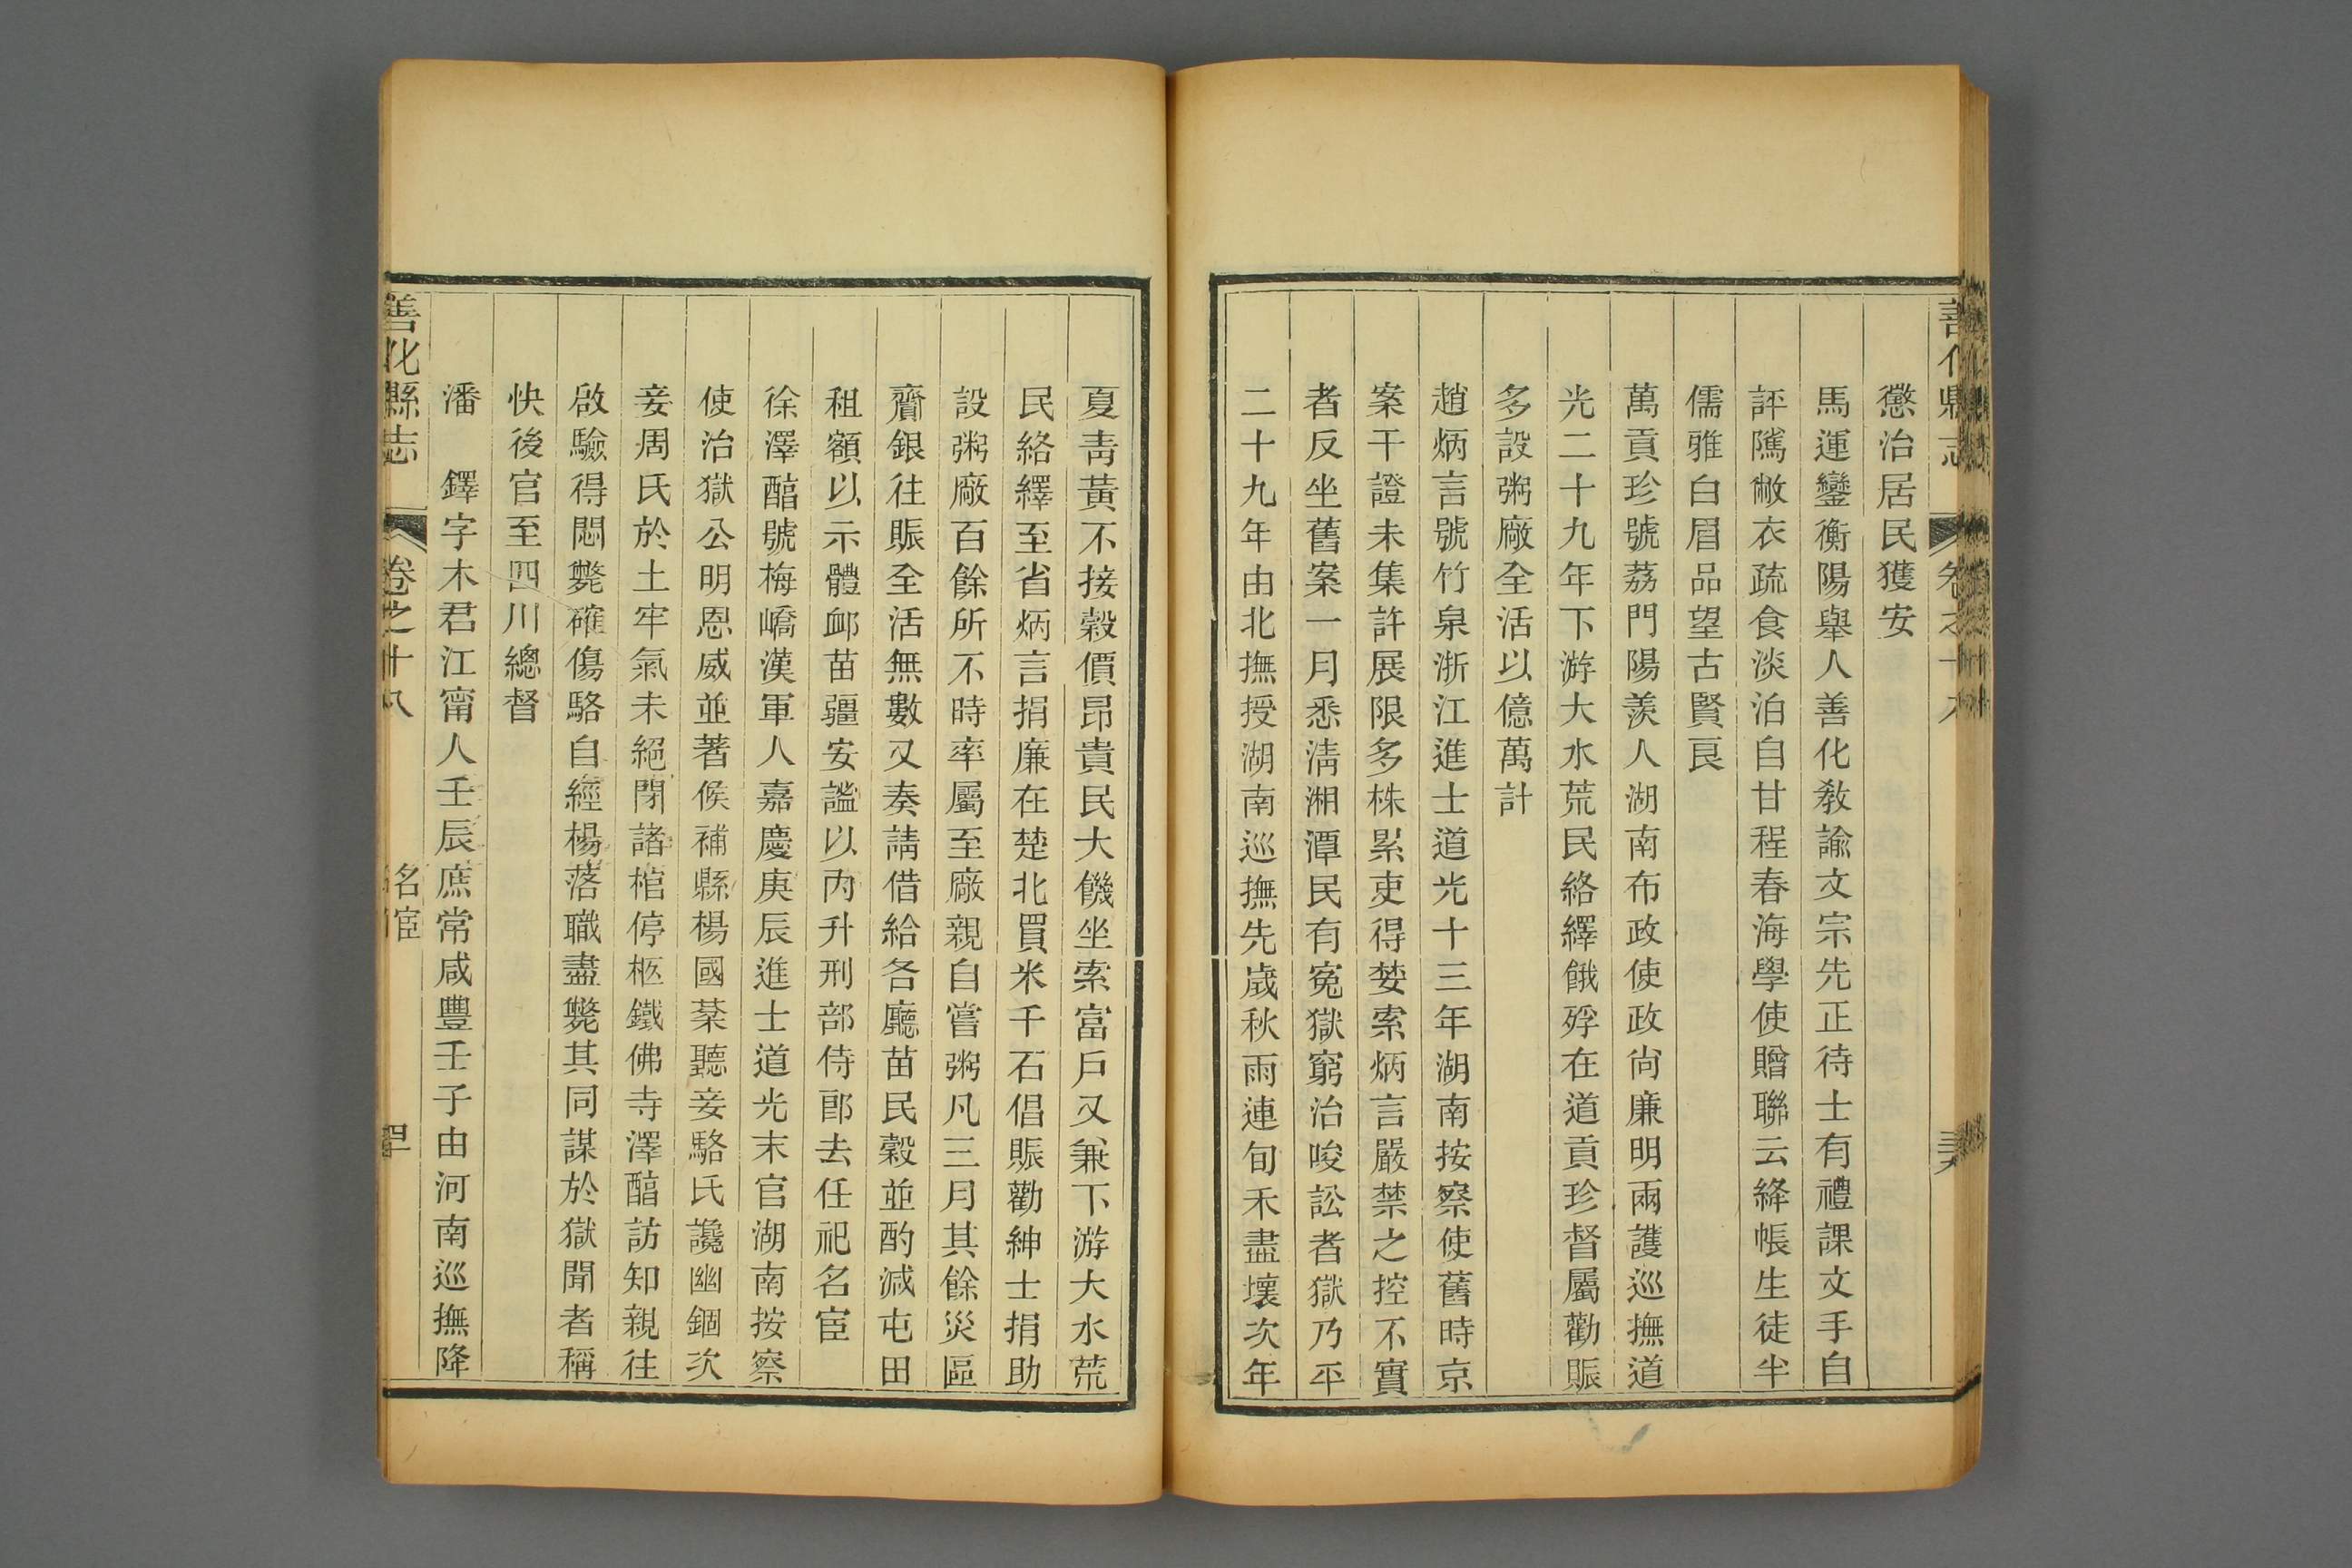 懲治居民獲安
馬運鑾衡陽舉人善化教諭文宗先正待士有禮課文手自
評隲敝衣疏食淡泊自甘程春海學使贈聯云絳帳生徒半
儒雅白眉品望古賢良
萬貢珍號荔門陽羨人湖南布政使政尙廉明兩護巡撫道
光二十九年下游大水荒民絡繹餓殍在道貢珍督屬勸賑
多設粥廠全活以億萬計
趙炳言號竹泉浙江進士道光十三年湖南按察使舊時京
案干證未集許展限多株累吏得婪索炳言嚴禁之控不實
者反坐舊案一月悉淸湘潭民有寃獄窮治唆訟者獄乃平
二十九年由北撫授湖南巡撫先歲秋雨連旬禾盡壞次年
夏靑黃不接穀價昂貴民大饑坐索富戶又兼下游大水荒
民絡繹至省炳言捐廉在楚北買米千石倡賑勸紳士捐助
設粥廠百餘所不時率屬至廠親自嘗粥凡三月其餘災區
齎銀往賑全活無數又奏請借給各廳苗民穀並酌減屯田
租額以示體卹苗疆安謐以內升刑部侍郎去任祀名宦
徐澤醇號梅嶠漢軍人嘉慶庚辰進士道光末官湖南按察
使治獄公明恩威並著候補縣楊國棻聽妾駱氏讒幽錮次
妾周氏於土牢氣未絕閉諸棺停柩鐵佛寺澤醇訪知親往
啟驗得悶斃確傷駱自經楊落職盡斃其同謀於獄聞者稱
快後官至四川總督
潘　鐸字木君江甯人壬辰庶常咸豐壬子由河南巡撫降
善化縣志　卷之十八　名宦